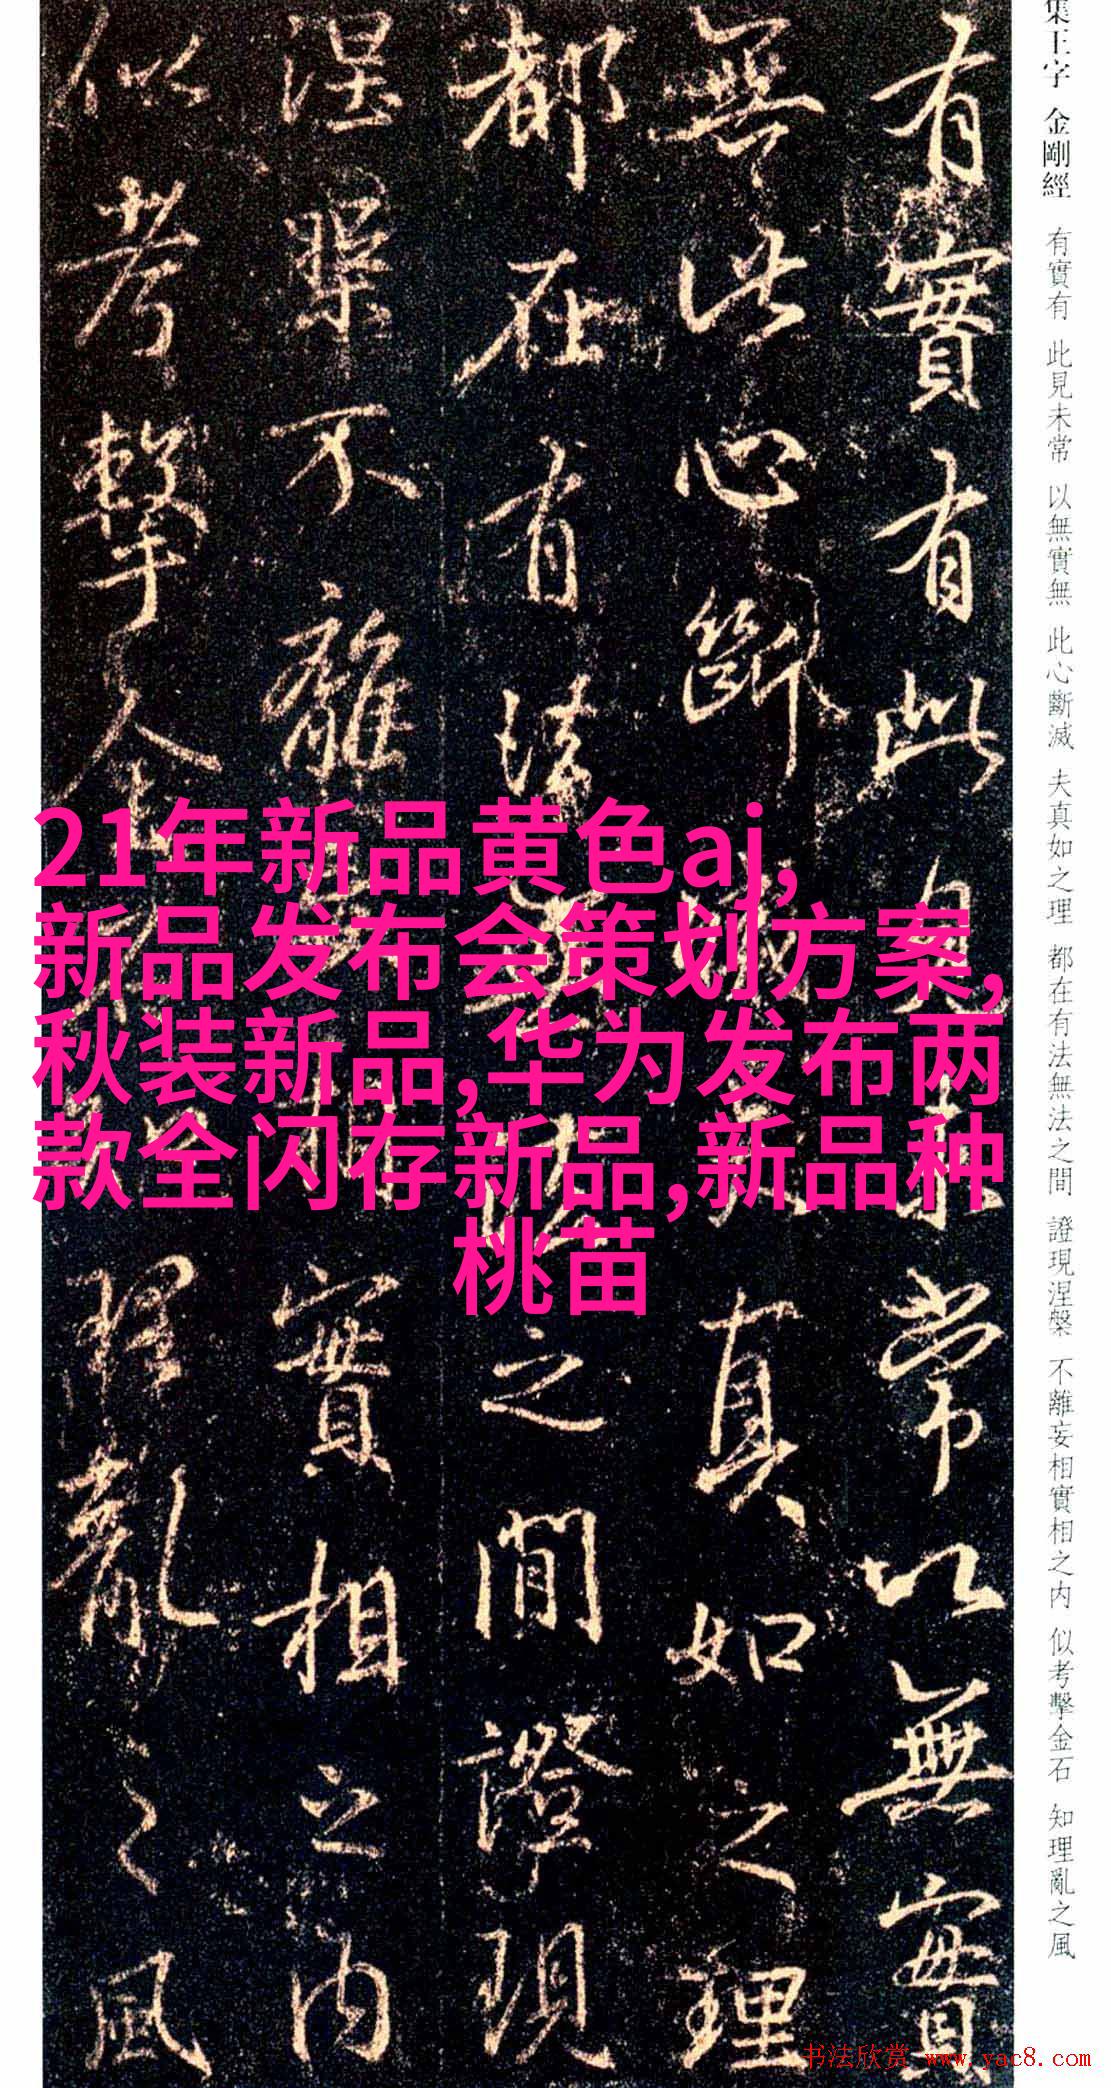 集王字 金剛經 有實有 此見未常 以無實無 此心斷滅 夫真如之理 都在有法無法之間 證現涅槃 不離妄相實相之內 似考擊金石 知理亂之風
有實有此見未常以無實
無此心斷滅夫真如之理
都在有法無法之間證現
涅槃不離妄相實相之內
似考擊金石知理亂之風
21年新品黄色aj,
新品发布会策划方案,
秋装新品,华为发布两
款全闪存新品,新品种
桃苗
书法欣赏 www.yac8.com